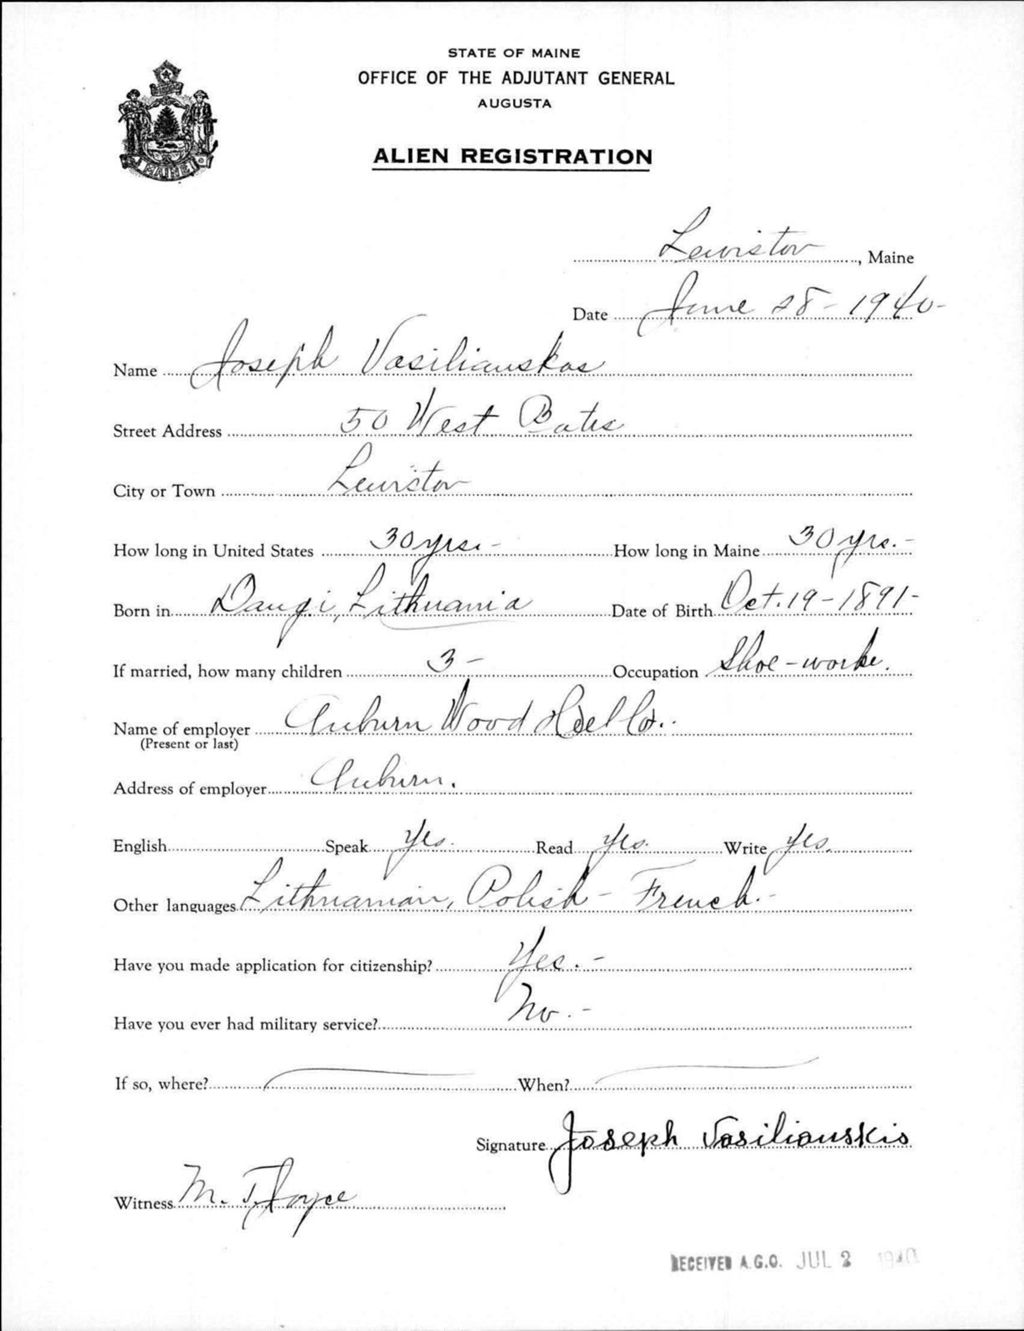 STATE OF MAINE
OFFICE OF THE ADJUTANT GENERAL
AUGUSTA
ALIEN REGISTRATION
MAINE
Lewiston, Maine
Date June 28 - 1940 -
Name Joseph Vasilianskas
Street Address 50 West Bates
City or Town Lewiston
How long in United States 30 yrs. - How long in Maine 30 yrs. -
Born in Daugi, Lithuania Date of Birth Oct. 19 - 1891 -
If married, how many children 3 - Occupation Shoe - worker.
Name of employer Auburn Wood Heel Co. -
(Present or last)
Address of employer Auburn.
English Speak Yes. Read Yes. Write Yes.
Other languages Lithuanian, Polish - French. -
Have you made application for citizenship? Yes. -
Have you ever had military service? No. -
If so, where? When?
Signature Joseph Vasilianskis
Witness M. T. Joyce
RECEIVED A.G.O. JUL 2 1940